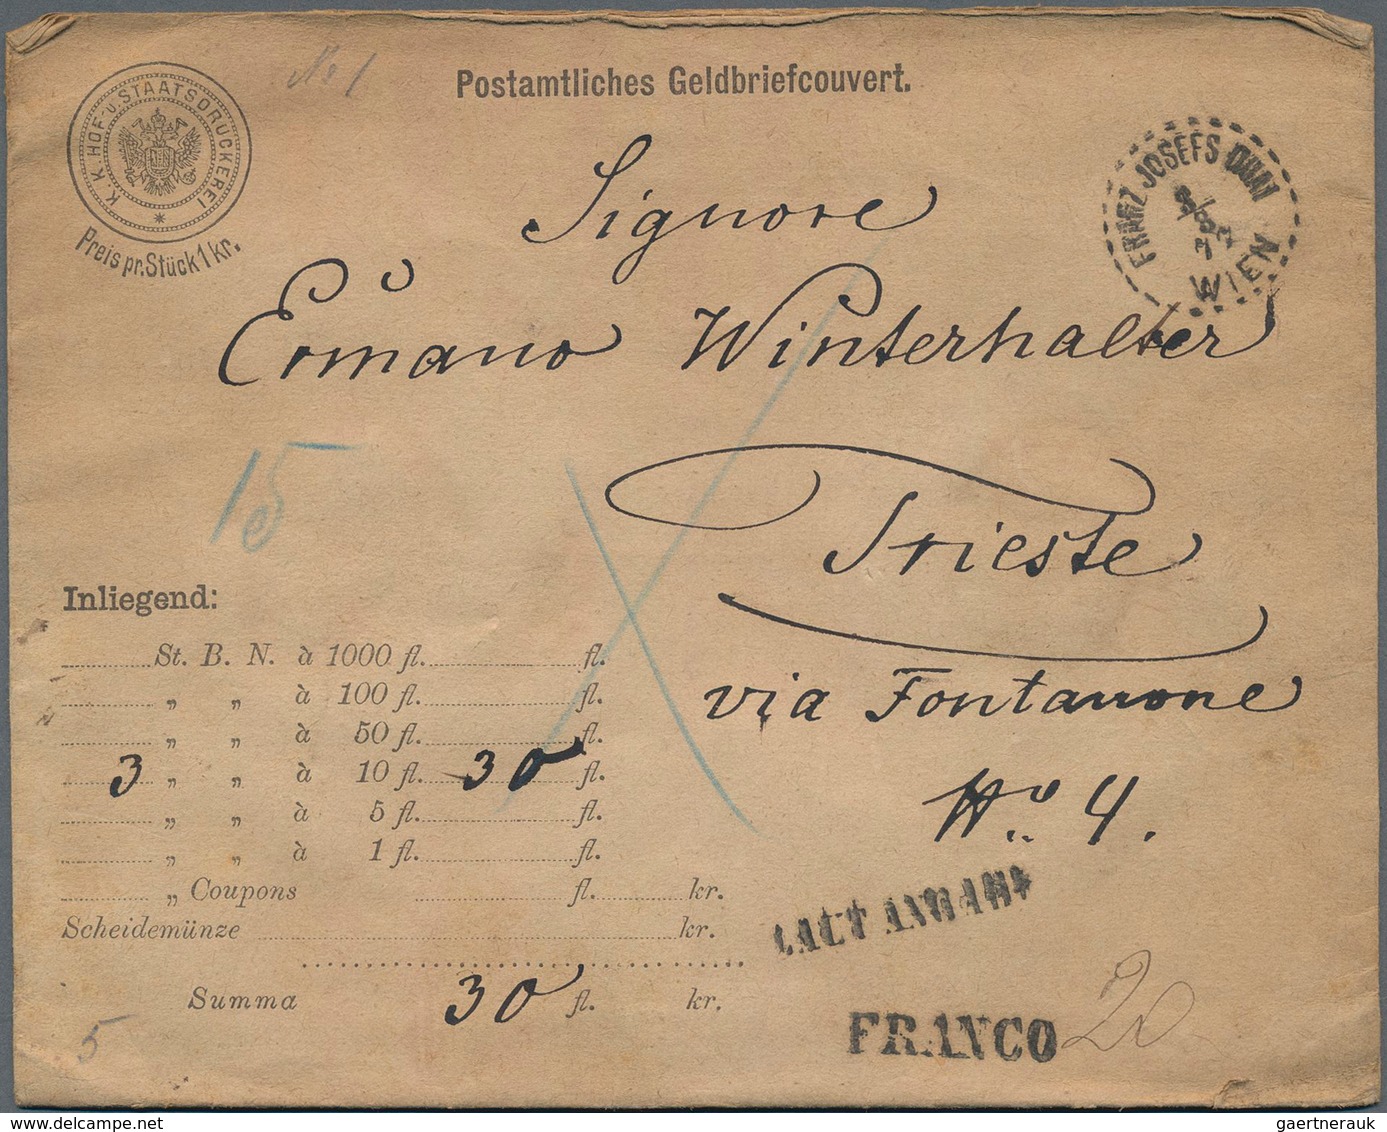 No 1
Postamtliches Geldbriefcouvert.
K. K. HOF- U. STAATSDRUCKEREI
Preis pr. Stück 1 kr.
FRANZ JOSEFS QUAI
WIEN
Signore
Ermano Winterhalter
15
Trieste
via Fontanone
No. 4.
Inliegend:
St. B. N. à 1000 fl. fl.
„ „ à 100 fl. fl.
„ „ à 50 fl. fl.
3 „ „ à 10 fl. 30 fl.
„ „ à 5 fl. fl.
„ „ à 1 fl. fl.
„ Coupons fl. kr.
Scheidemünze kr.
Summa 30 fl. kr.
LAUT ANGABE
FRANCO 20
5
gaertnerauk